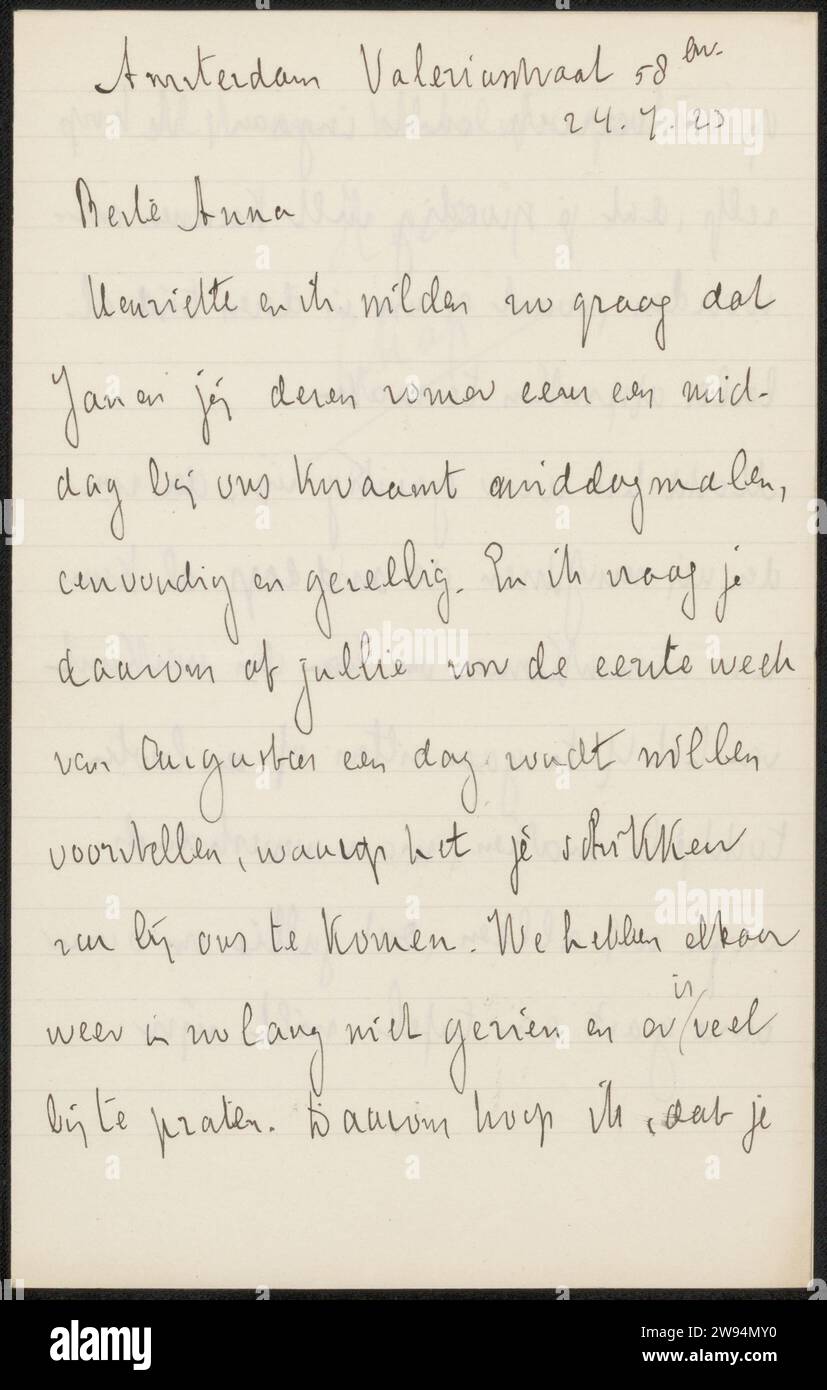 Amsterdam Valeriusstraat 58 bv.
24.7.23
Beste Anna
Henriette en ik wilden zo graag dat
Jan en jij dezen zomer eens een mid-
dag bij ons kwaamt middagmalen,
eenvoudig en gezellig. En ik vraag je
daarom of jullie voor de eerste week
van Augustus een dag zoudt willen
voorstellen, waarop het je schikken
zou bij ons te komen. We hebben elkaar
weer in zo lang niet gezien en er is veel
bij te praten. Daarom hoop ik, dat je
alamy
alamy
Image ID: 2W94MY0
www.alamy.com